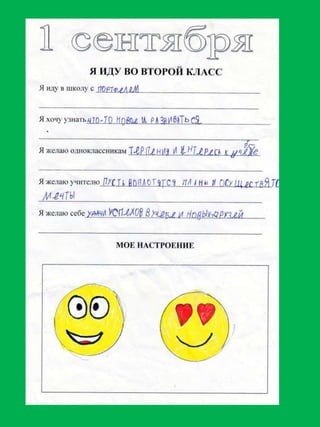 1 сентября
Я ИДУ ВО ВТОРОЙ КЛАСС
Я иду в школу с портфелем
Я хочу узнать что-то новое и развиваться
Я желаю одноклассникам терпения и интереса к учёбе
Я желаю учителю пусть воплотятся планы и осуществятся
мечты
Я желаю себе успехов в учебе и новых друзей
МОЕ НАСТРОЕНИЕ